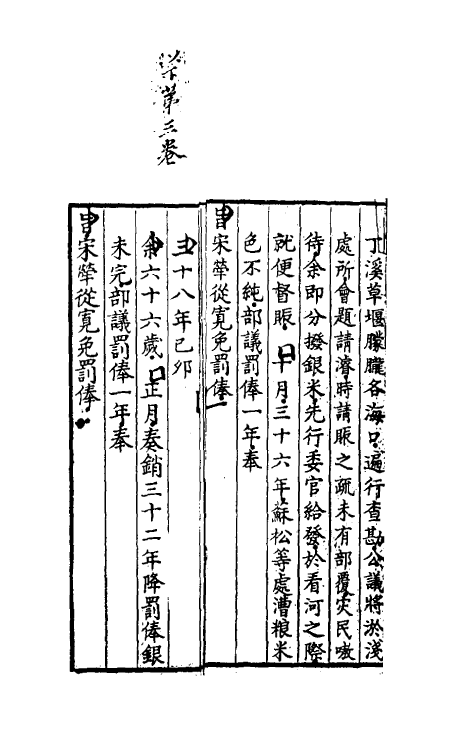 以下第三卷
丁溪草堰朦朧各海口遍行查勘公議將淤淺
處所會題請濬時請賑之疏未有部覆灾民嗷
待余即分撥銀米先行委官給發於看河之際
就便督賑十月三十六年蘇松等處漕粮米
色不純部議罰俸一年奉
旨宋犖從寬免罰俸
三十八年己卯
余六十六歲正月奏銷三十二年降罰俸銀
未完部議罰俸一年奉
旨宋犖從寬免罰俸